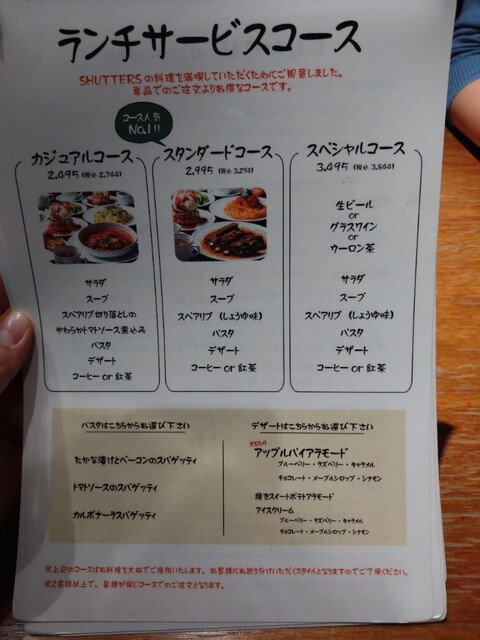 ランチサービスコース
SHUTTERSの料理を満喫していただくためにご用意しました。
単品でのご注文よりお得なコースです。
コース人気
No.1!!
カジュアルコース
2,495(税込2,744)
サラダ
スープ
スペアリブ切り落としの
やわらかトマトソース煮込み
パスタ
デザート
コーヒー or 紅茶
スタンダードコース
2,995(税込3,294)
サラダ
スープ
スペアリブ(しょうゆ味)
パスタ
デザート
コーヒー or 紅茶
スペシャルコース
3,495(税込3,844)
生ビール
or
グラスワイン
or
ウーロン茶
サラダ
スープ
スペアリブ(しょうゆ味)
パスタ
デザート
コーヒー or 紅茶
パスタはこちらからお選び下さい
たかな漬けとベーコンのスパゲッティ
トマトソースのスパゲッティ
カルボナーラスパゲッティ
デザートはこちらからお選び下さい
オススメ!
アップルパイアラモード
ブルーベリー・ラズベリー・キャラメル
チョコレート・メープルシロップ・シナモン
焼きスイートポテトアラモード
アイスクリーム
ブルーベリー・ラズベリー・キャラメル
チョコレート・メープルシロップ・シナモン
※上記のコースはお料理を大皿でご提供いたします。お客様にお取り分けいただくスタイルとなりますのでご了承ください。
※2名様以上で、皆様が同じコースでのご注文となります。